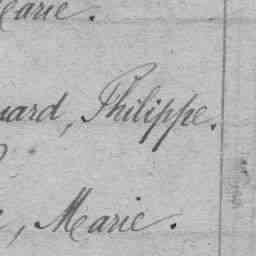 Marie.
uard, Philippe.
, Marie.